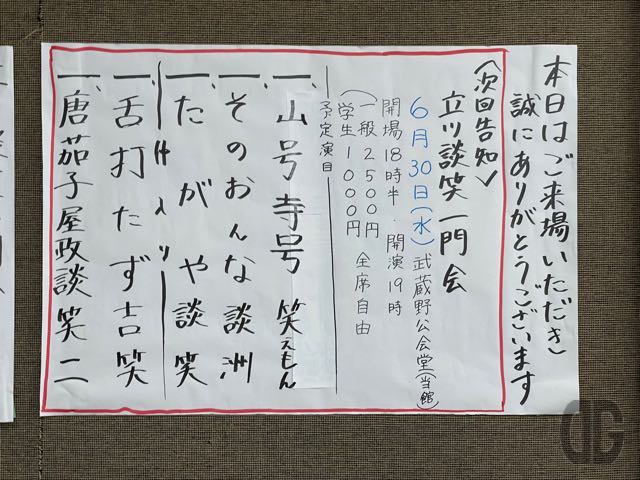 本日はご来場いただき
誠にありがとうございます
〈次回告知〉
立川談笑一門会
6月30日(水)武蔵野公会堂(当館)
開場18時半・開演19時
一般2500円
学生1000円
全席自由
予定演目
一、山号寺号 笑えもん
一、そのおんな 談洲
一、たがや 談笑
仲入り
一、舌打たず 吉笑
一、唐茄子屋政談 笑二
DG